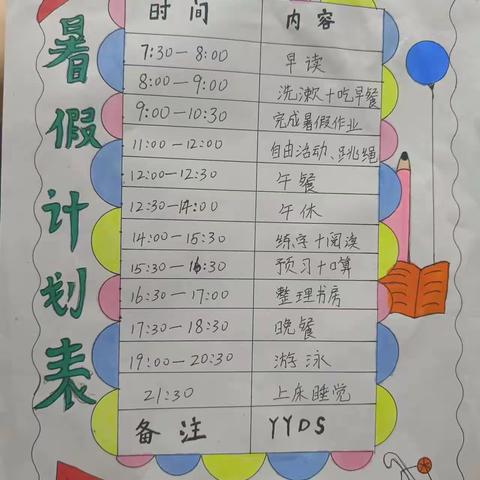 暑假计划表
时 间 内 容
7:30—8:00 早读
8:00—9:00 洗漱+吃早餐
9:00—10:30 完成暑假作业
11:00—12:00 自由活动、跳绳
12:00—12:30 午餐
12:30—14:00 午休
14:00—15:30 练字+阅读
15:30—16:30 预习+口算
16:30—17:00 整理书房
17:30—18:30 晚餐
19:00—20:30 游泳
21:30 上床睡觉
备 注 YYDS